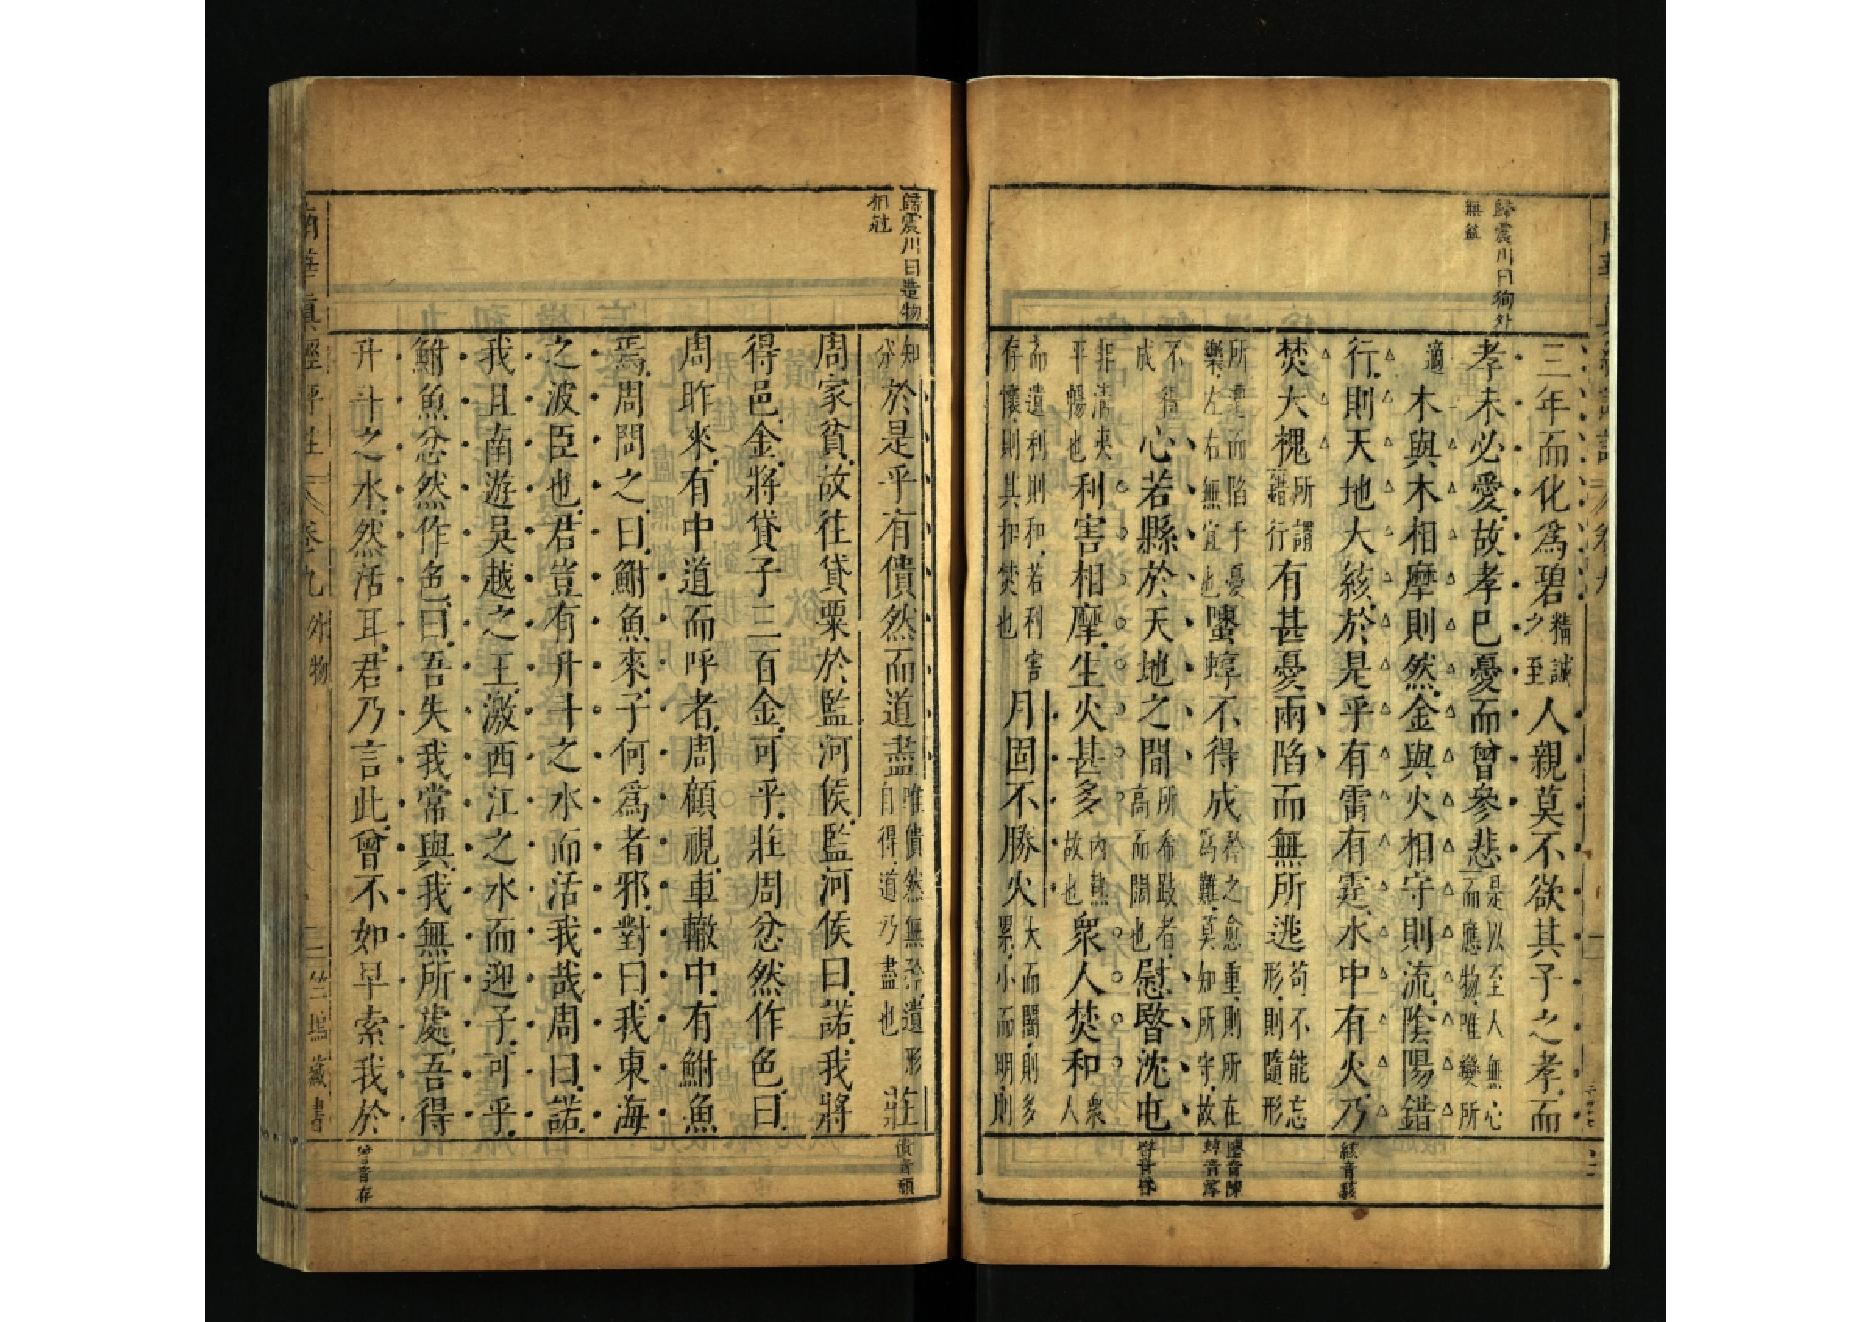 歸震川曰狥外
無益
三年而化爲碧精誠之至人親莫不欲其子之孝而
孝未必愛故孝已憂而曾參悲是以至人無心而應物唯變所
適木與木相摩則然金與火相守則流陰陽錯
行則天地大絯於是乎有雷有霆水中有火乃
焚大槐所謂錯行有甚憂兩陷而無所逃苟不能忘形則隨形
所遭而陷于憂樂左右無宜也螴蜳不得成矜之愈重則所在爲難莫知所守故
不得成心若縣於天地之間所希跂者高而闊也慰暋沈屯
非清夷平暢也利害相摩生火甚多內熱故也衆人焚和衆人
而遺利則和若利害存懷則其和焚也月固不勝火大而闇則多累小而明則
絯音駭
螴音陳
蜳音惇
歸震川曰造物
相莊
知分於是乎有僓然而道盡唯僓然無矜遺形自得道乃盡也莊
周家貧故往貸粟於監河侯監河侯曰諾我將
得邑金將貸子三百金可乎莊周忿然作色曰
周昨來有中道而呼者周顧視車轍中有鮒魚
焉周問之曰鮒魚來子何爲者邪對曰我東海
之波臣也君豈有升斗之水而活我哉周曰諾
我且南遊吳越之王激西江之水而迎子可乎
鮒魚忿然作色曰吾失我常與我無所處吾得
升斗之水然活耳君乃言此曾不如早索我於
僓音頹
曾音存
南華眞經評註 卷九 外物 三 竺塢藏書